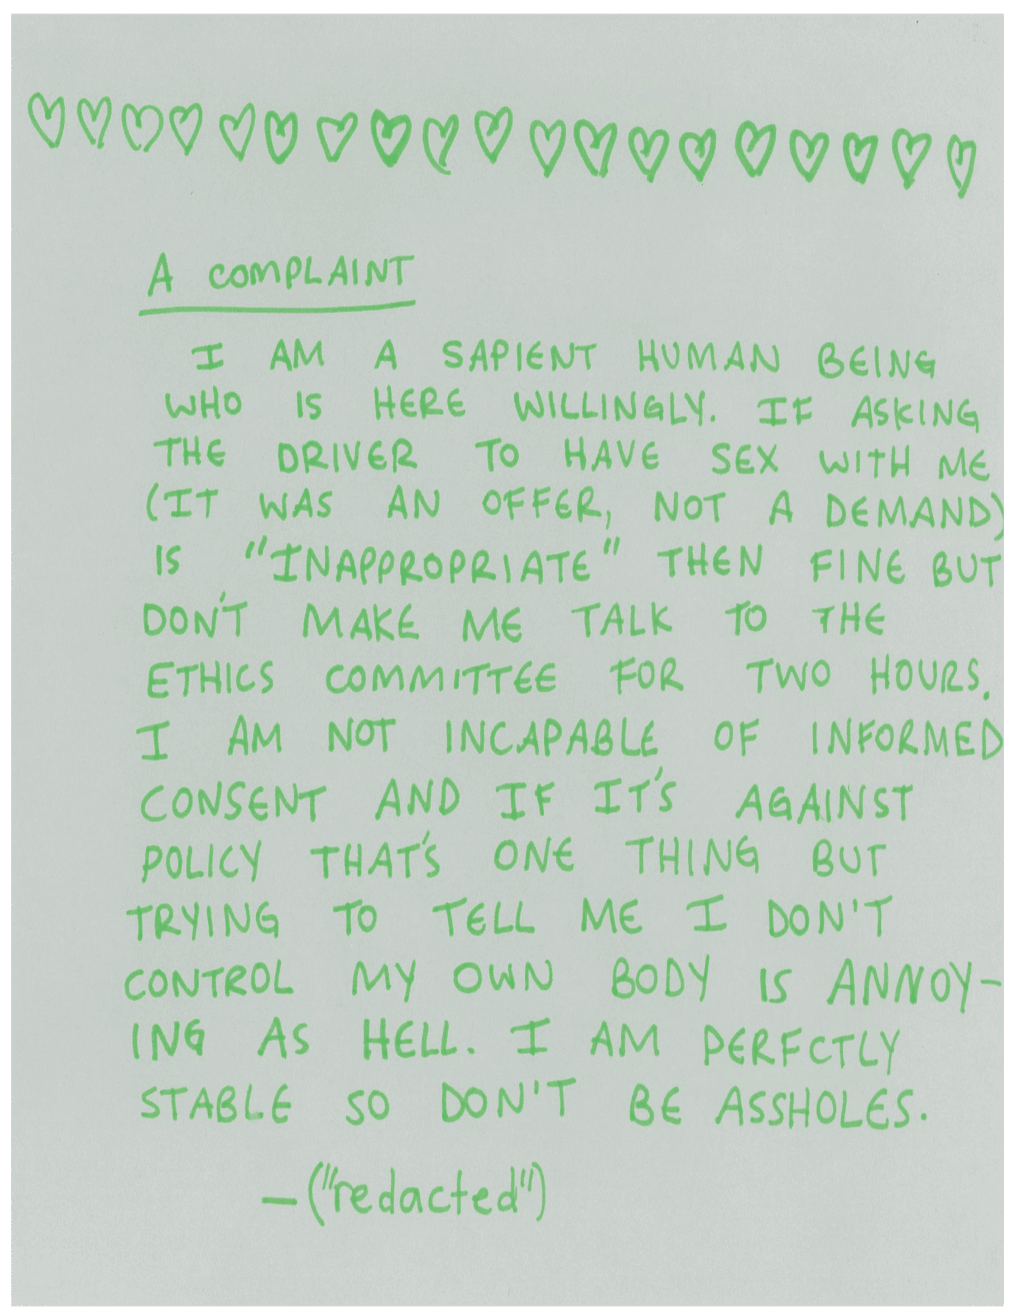 A COMPLAINT
I AM A SAPIENT HUMAN BEING
WHO IS HERE WILLINGLY. IF ASKING
THE DRIVER TO HAVE SEX WITH ME
(IT WAS AN OFFER, NOT A DEMAND)
IS "INAPPROPRIATE" THEN FINE BUT
DON'T MAKE ME TALK TO THE
ETHICS COMMITTEE FOR TWO HOURS.
I AM NOT INCAPABLE OF INFORMED
CONSENT AND IF IT'S AGAINST
POLICY THAT'S ONE THING BUT
TRYING TO TELL ME I DON'T
CONTROL MY OWN BODY IS ANNOY-
ING AS HELL. I AM PERFCTLY
STABLE SO DON'T BE ASSHOLES.
—("redacted")